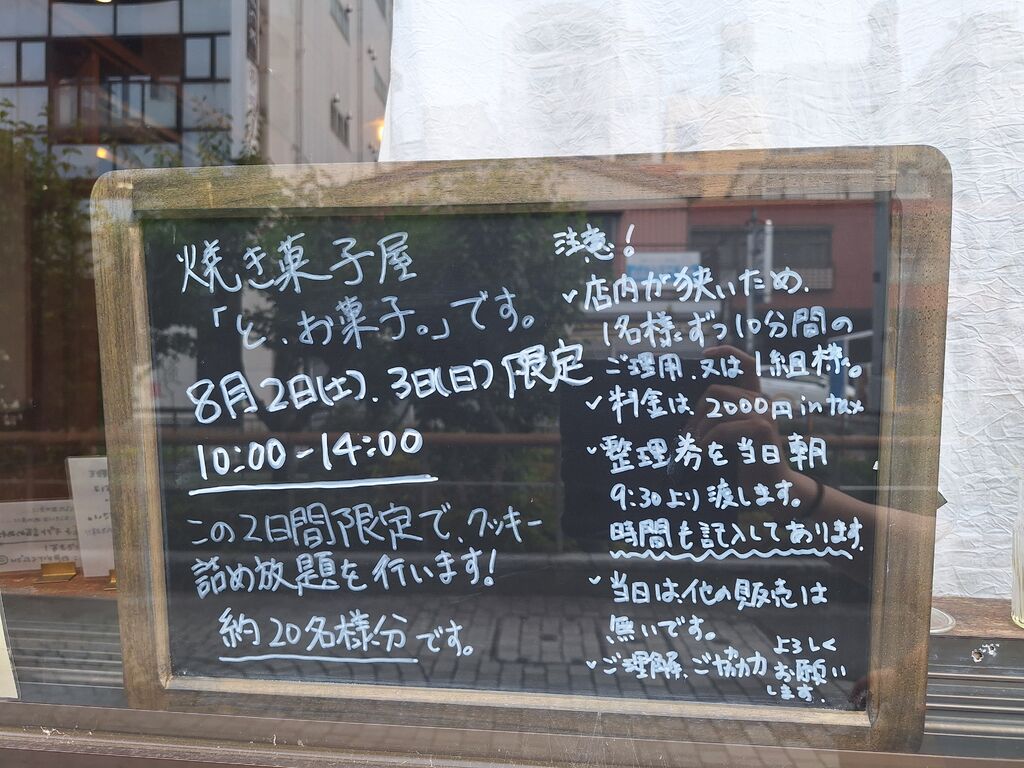 焼き菓子屋
「と、お菓子。」です。
8月2日(土)、3日(日)限定
10:00-14:00
この2日間限定で、クッキー
詰め放題を行います!
約20名様分です。
注意!
✓店内が狭いため、
1名様ずつ10分間の
ご理用、又は1組様。
✓料金は、2000円in tax
✓整理券を当日朝
9:30より渡します。
時間も記入してあります。
✓当日は、他の販売は
無いです。
✓ご理解、ご協力よろしく
お願い
します。